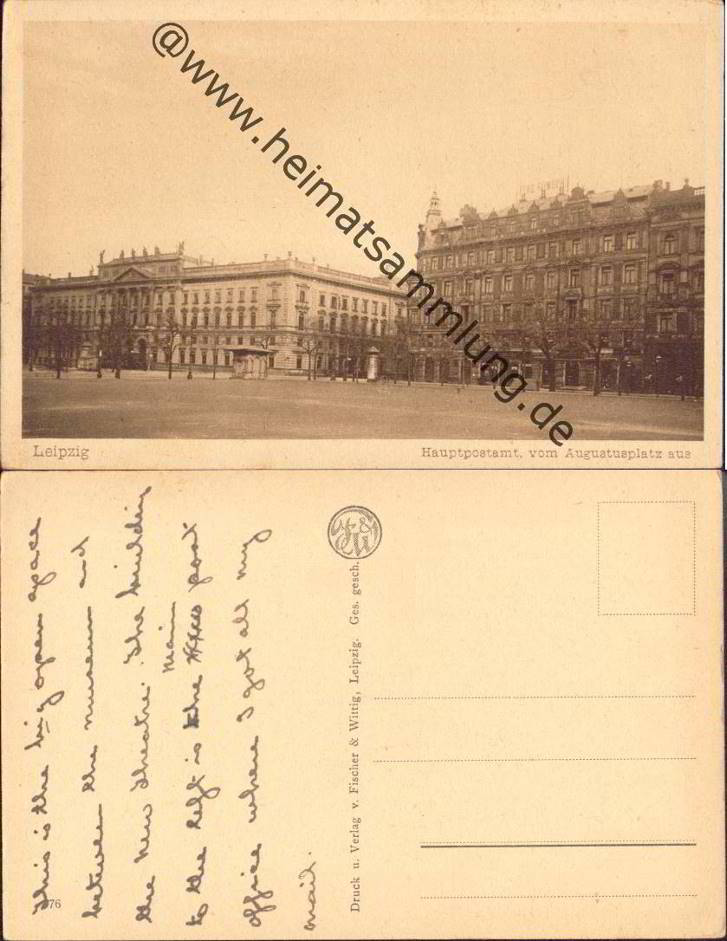 @www.heimatsammlung.de
Leipzig
Hauptpostamt, vom Augustusplatz aus
This is the big open space
between the museum and
the New Theatre. The building
to the left is the main post
office where I got all my
mail.
76
Druck u. Verlag v. Fischer & Wittig, Leipzig. Ges. gesch.
F&W